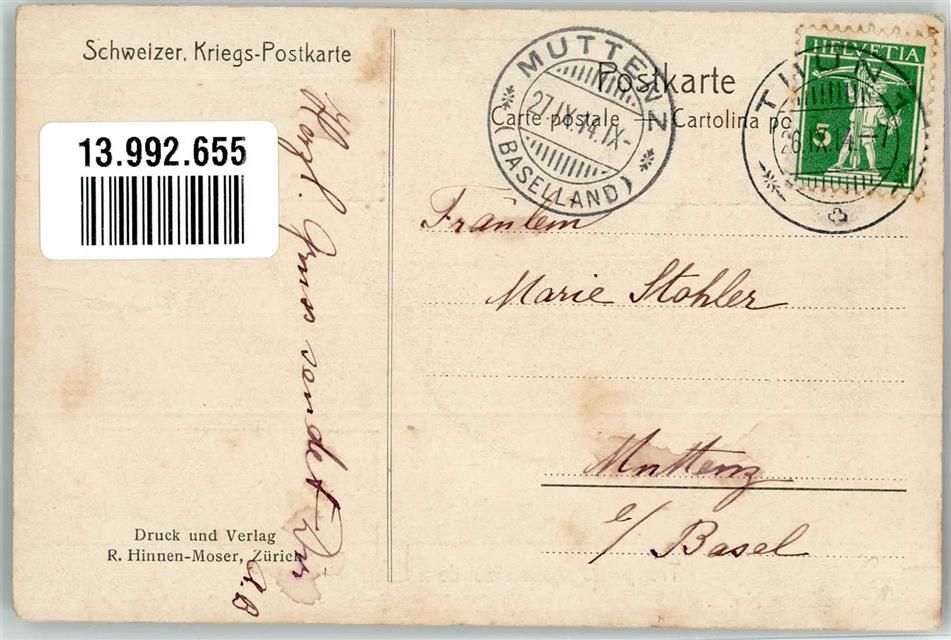 Schweizer. Kriegs-Postkarte
Postkarte
Carte postale — Cartolina po
13.992.655
MUTTENZ
27.IX.14.IX-
(BASELLAND)
HELVETIA
5
THUN 1
26.IX.14.-7
Herzl. Gruss sendet Dir
Fräulein
Marie Stohler
Muttenz
b/ Basel
Druck und Verlag
R. Hinnen-Moser, Zürich